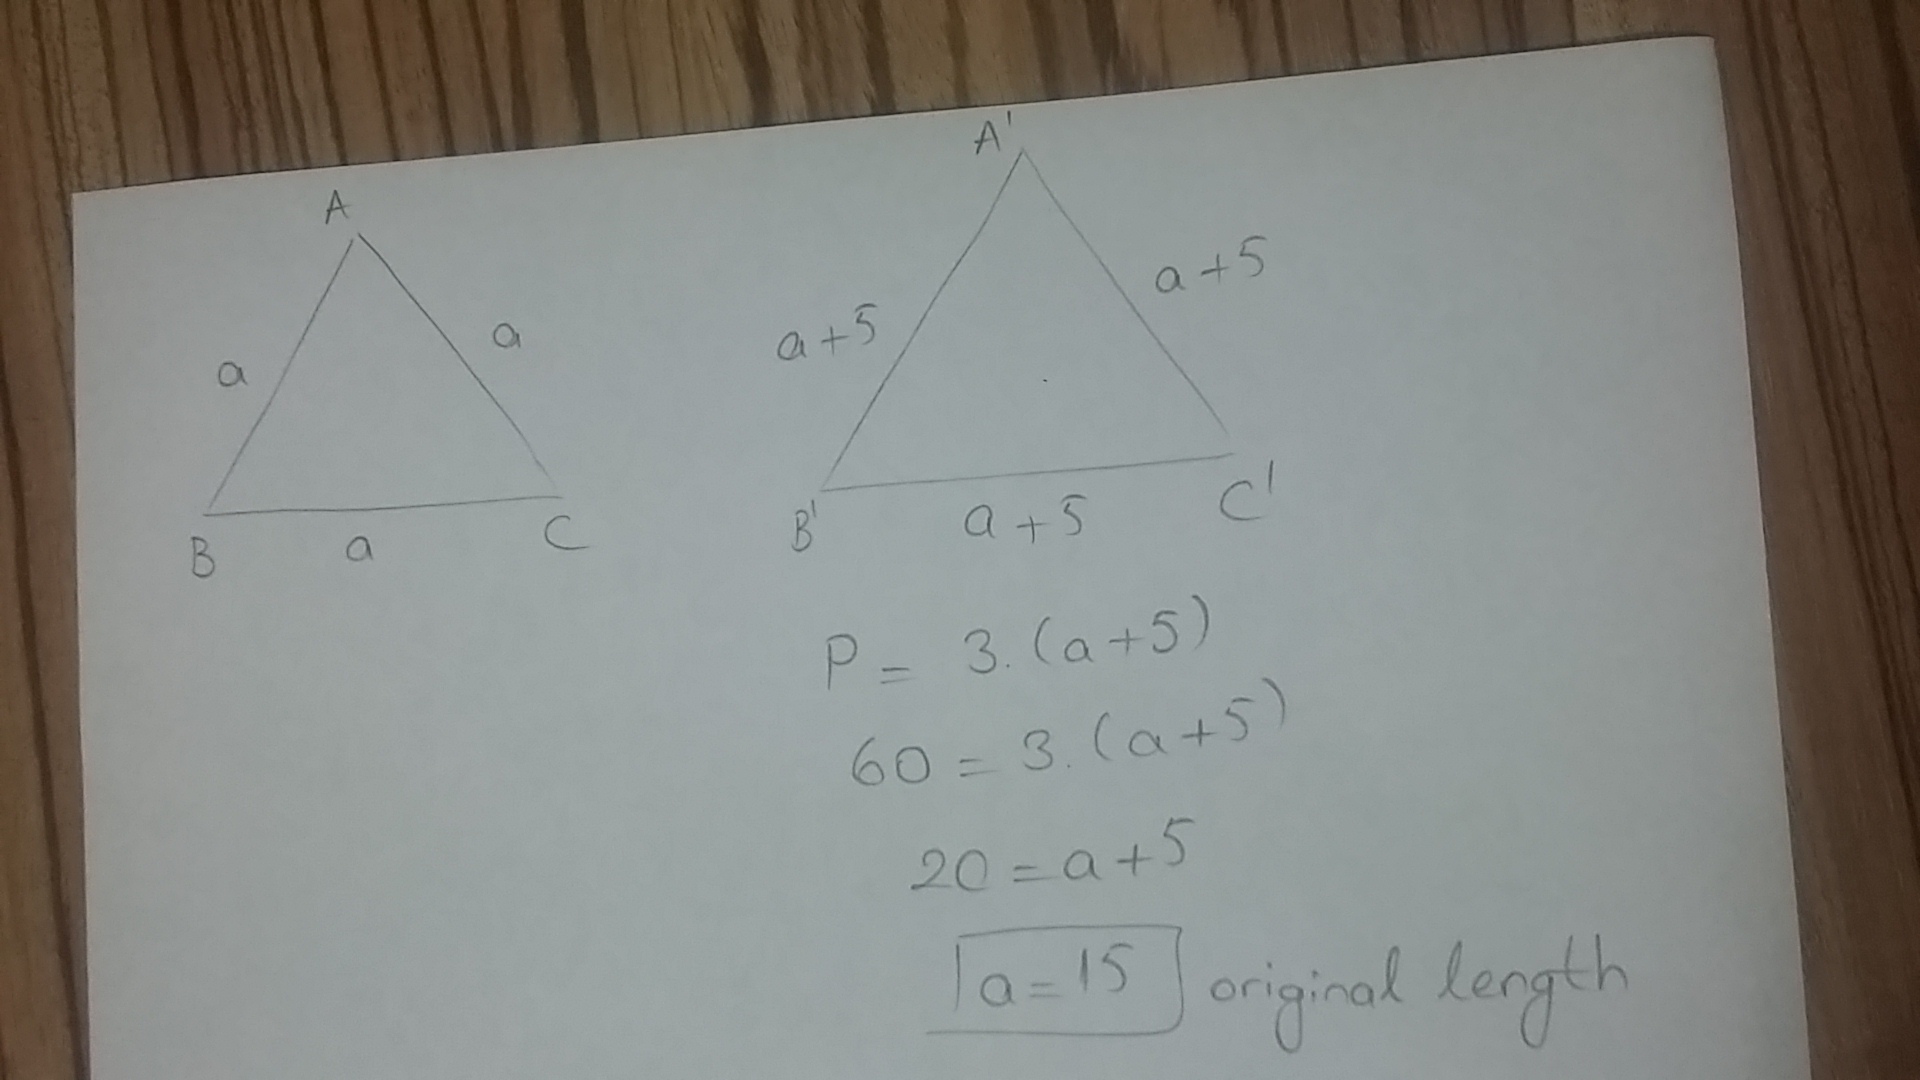 A
a
a
B
a
C
A'
a+5
a+5
B'
a+5
C'
P = 3.(a+5)
60 = 3.(a+5)
20 = a+5
a = 15 original length